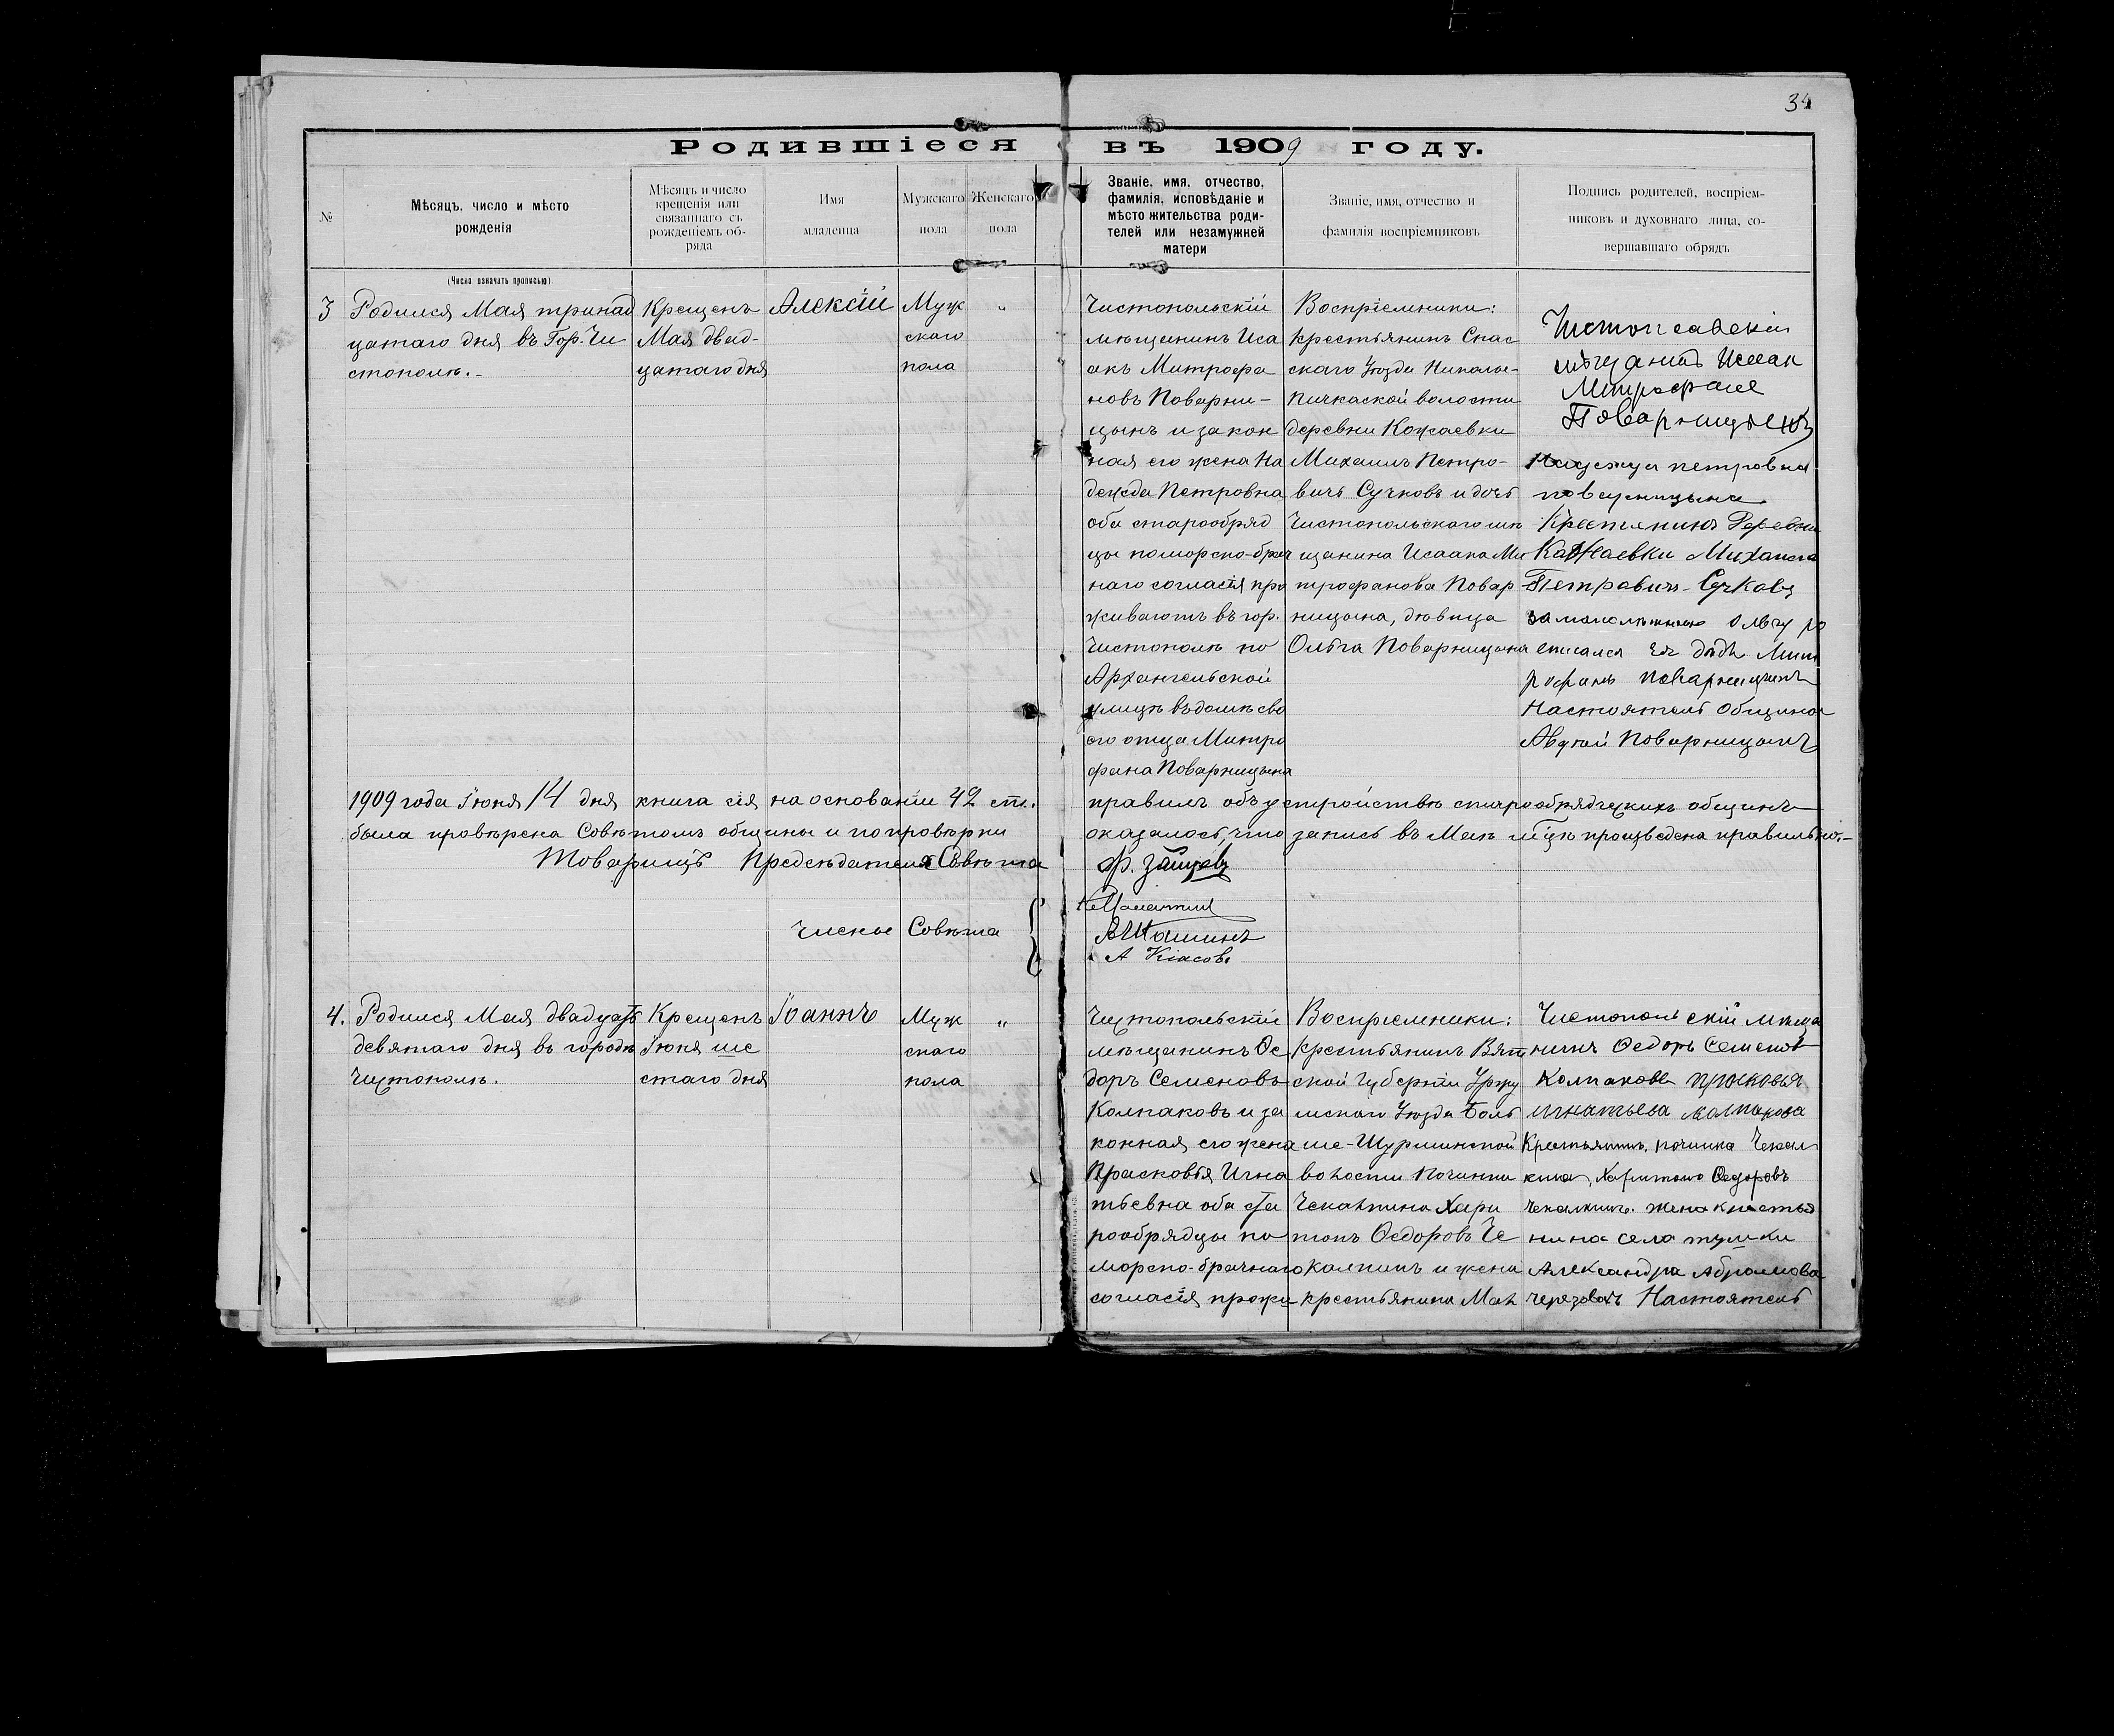 34
Родившіеся въ 1909 году.
№
Мѣсяцъ, число и мѣсто
рожденія
Мѣсяцъ и число
крещенія или
связаннаго съ
рожденіемъ об-
ряда
Имя
младенца
Мужскаго
пола
Женскаго
пола
Званіе, имя, отчество,
фамилія, исповѣданіе и
мѣсто жительства роди-
телей или незамужней
матери
Званіе, имя, отчество и
фамилія воспріемниковъ
Подпись родителей, воспріем-
никовъ и духовнаго лица, со-
вершавшаго обрядъ
(Число означать прописью)
3
Родился Мая тринад
цатаго дня въ Гор. Чи
стополѣ.-
Крещенъ
Мая двад-
цатаго дня
Алексій
Муж
скаго
пола
"
Чистопольскій
мѣщанинъ Иса
акъ Митрофа
новъ Поварни-
цынъ и закон
ная его жена На
дежда Петровна
оба старообряд
цы поморско-брач
наго согласія про
живаютъ въ гор.
Чистополѣ по
Архангельской
улицѣ въ домѣ сво
его отца Митро
фана Поварницына
Воспріемники:
крестьянинъ Спас
скаго Уѣзда Никольс-
Пичкаской волости
деревни Кожаевки
Михаилъ Петро-
вичъ Сучковъ и дочь
Чистопольскаго мѣ
щанина Исаака Ми
трофанова Повар
ницына, дѣвица
Ольга Поварницына
мѣщанинъ Исаак
Поварницынъ
Надежда петровна
поварницына
Крестьянинъ
Кажаевки Михаила
Петравичъ Сучковъ
Ольгу ро
списался Ея дѣдъ Мит
рофанъ Поварницынъ
Настоятель Общины
Авдѣй Поварницынъ
1909 года Іюня 14 дня книга сія на основаніи 42 ст. правилъ объ устройствѣ старообрядческихъ общинъ
была провѣрена Совѣтомъ общины и по провѣрки оказалось, что запись въ Маѣ м-цѣ произведена правильно.-
Товарищъ Предсѣдателя Совѣта Ф. Зайцевъ
Члены Совѣта
4.
Родился Мая двадцать
девятаго дня въ городѣ
Чистополѣ.
Крещенъ
Іюня ше
стаго дня
Іоаннъ
Муж
скаго
пола
"
Чистопольскій
мѣщанинъ Ѳе
доръ Семеновъ
Колпаковъ и за
конная его жена
Прасковья Игна
тьевна оба ста
рообрядцы по
морско-брачнаго
согласія прожи
Воспріемники:
крестьянинъ Вят
ской Губерніи Уржу
мскаго Уѣзда Боль
ше-Шурминской
волости Починки
Чекалкина Хари
тонъ Ѳедоровъ Че
калкинъ и жена
крестьянина Мал
Чистопольскій мѣща
нинъ Ѳедоръ Семенов
Колпаковъ Прасковья
Игнатьева Колпакова
Крестьянинъ, починка Чекал
кина, Харитонъ Ѳедоровъ
Чекалкинъ. Жена крестья
нина села
Александра Абрамова
Настоятель